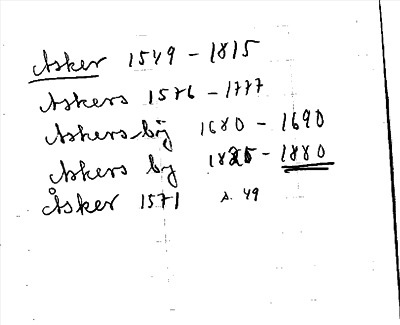 Asker 1549 - 1815
Askers 1576 - 1777
Askersbÿ 1680 - 1690
Askers by 1825 - 1880
Åsker 1571 s. 49